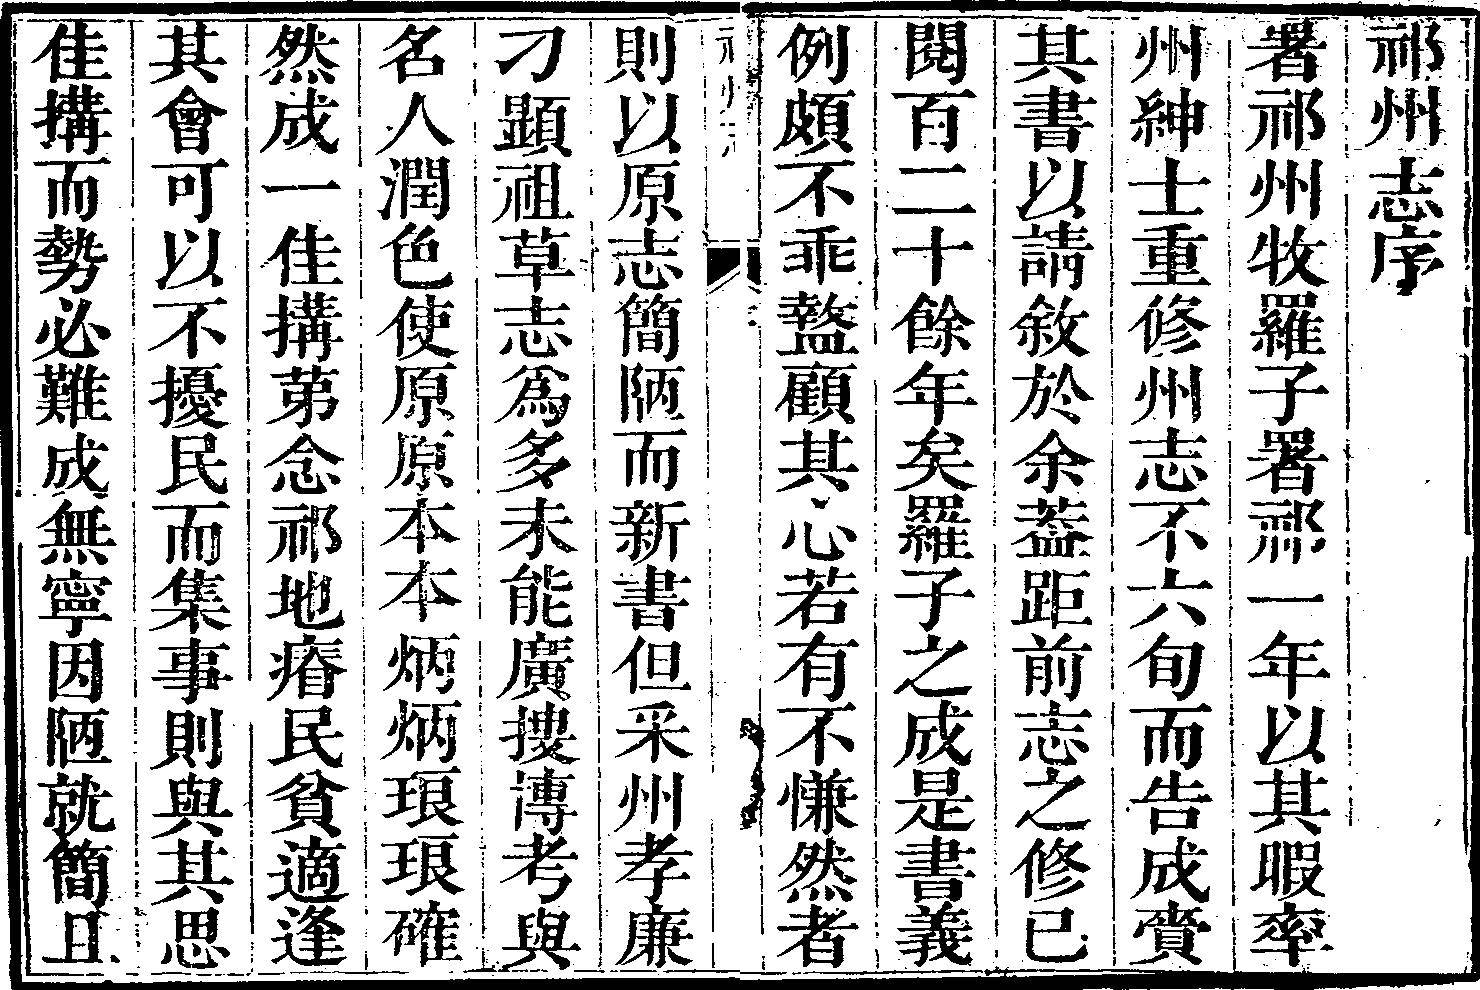 祁州志序
署祁州牧羅子署祁一年以其暇率
州紳士重修州志不六旬而告成賫
其書以請敘於余葢距前志之修已
閱百二十餘年矣羅子之成是書義
例頗不乖盭顧其心若有不慊然者
祁州志
則以原志簡陋而新書但采州孝廉
刁顯祖草志爲多未能廣搜博考與
名人潤色使原原本本炳炳琅琅確
然成一佳搆苐念祁地瘠民貧適逢
其會可以不擾民而集事則與其思
佳搆而勢必難成無寧因陋就簡且